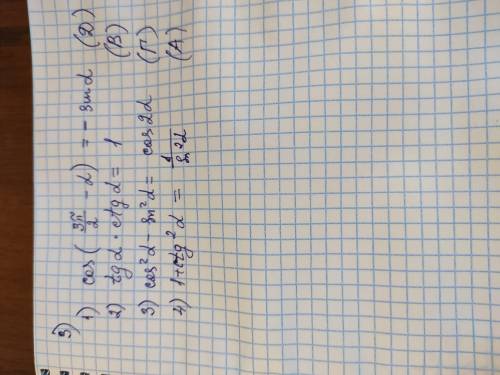 3)
1) cos(3π/2 - α) = - sin α (Д)
2) tg α · ctg α = 1 (В)
3) cos²α - sin²α = cos 2α (Г)
4) 1+ctg²α = 1/sin²α (А)